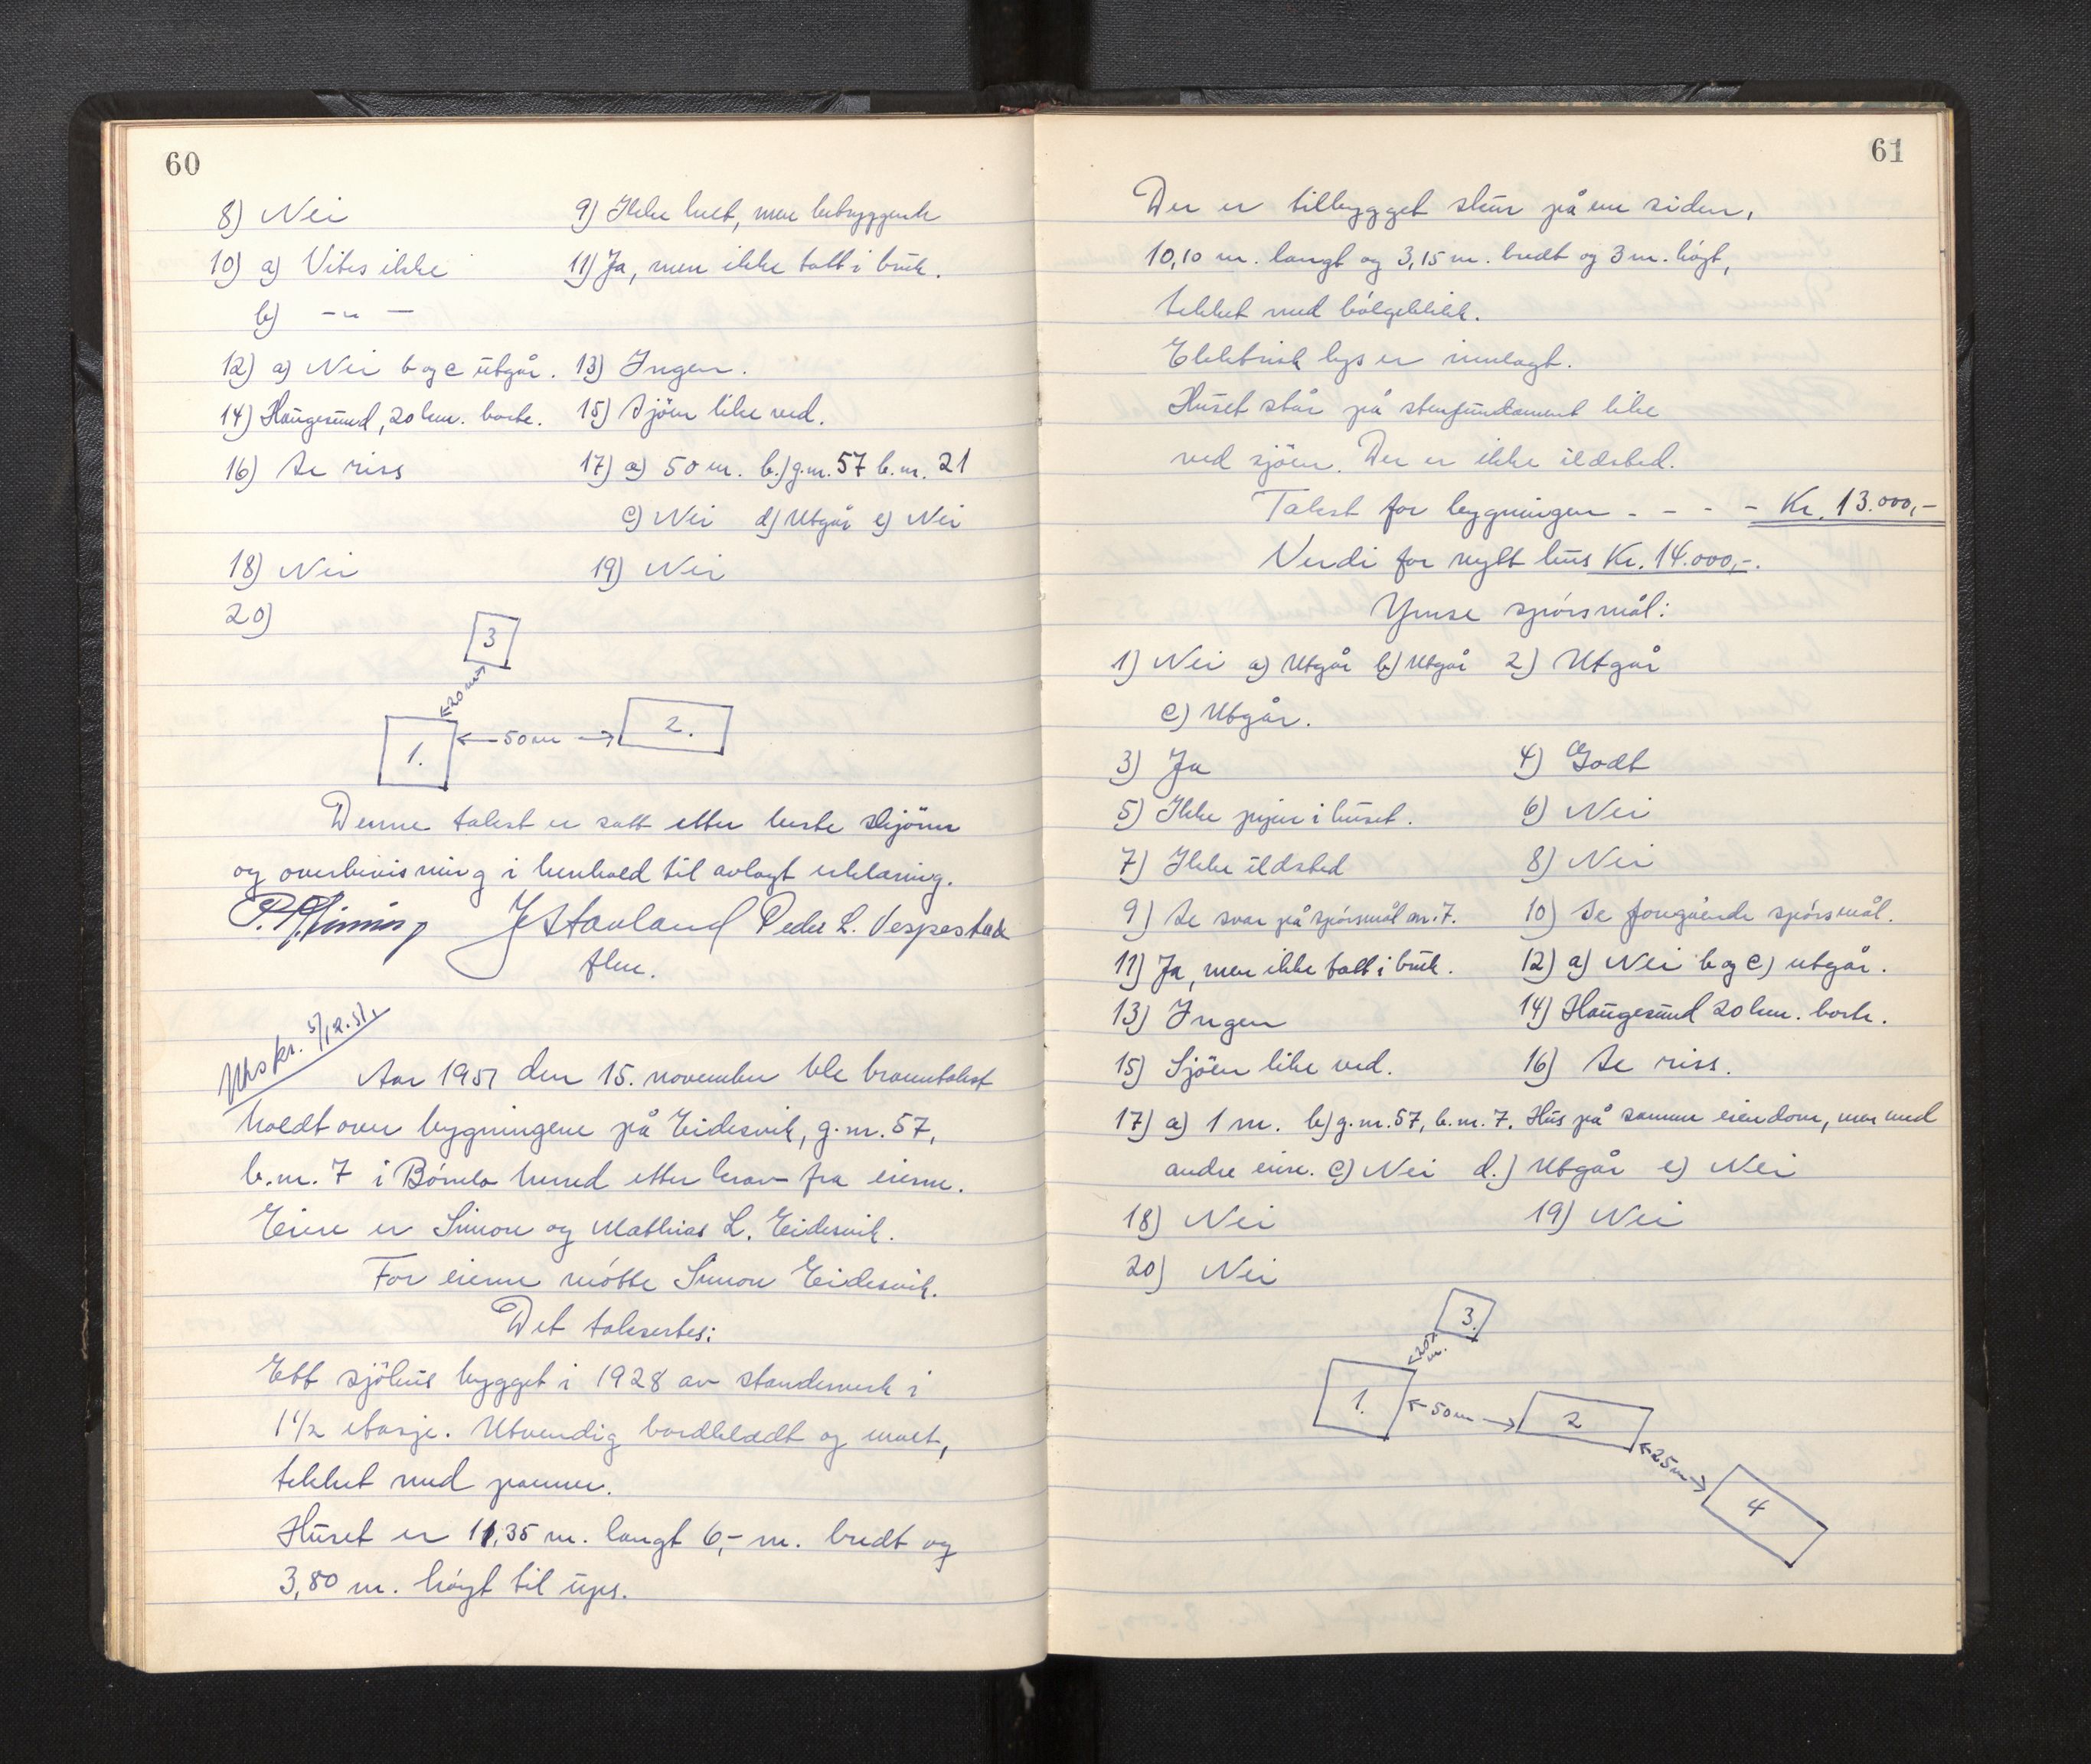 60
8) Nei 9) Ikke helt, men betryggende
10) a) Vites ikke 11) Ja, men ikke tatt i bruk.
b) -"-
12) a) Nei b og c utgår. 13) Ingen.
14) Haugesund, 20 km. borte. 15) Sjöen like ved.
16) Se riss 17) a) 50 m. b.) g.nr. 57 b.nr. 21
c) Nei d) Utgår e) Nei
18) Nei 19) Nei
20)
3
20 m
1. 50 m 2.
Denne takst er satt etter beste skjönn
og overbevisning i henhold til avlagt erklæring.
J Stavland Peder L. Vespestad
Utskr. 5/12.51.
Aar 1951 den 15. november ble branntakst
holdt over bygningene på Eidesvik, g.nr. 57,
b.nr. 7 i Bömlo herred etter krav fra eierne.
Eiere er Simon og Mathias L. Eidesvik.
For eierne mötte Simon Eidesvik.
Det taksertes:
Ett sjöhus bygget i 1928 av standerverk i
1 1/2 etasje. Utvendig bordkledt og malt,
tekket med panner.
Huset er 11,35 m. langt 6,- m. bredt og
3,80 m. höyt til ups.
61
Der er tilbygget skur på ene siden,
10,10 m. langt og 3,15 m. bredt og 3 m. högt,
tekket med bölgeblikk.
Elektrisk lys er innlagt.
Huset står på stenfundament like
ved sjöen. Der er ikke ildsted.
Takst for bygningen - - - - Kr. 13.000,-
Verdi for nytt hus Kr. 14.000,-.
Ymse spörsmål:
1) Nei a) Utgår b) Utgår 2) Utgår
c) Utgår.
3) Ja 4) Godt
5) Ikke piper i huset. 6) Nei
7) Ikke ildsted 8) Nei
9) Se svar på spörsmål nr. 7. 10) Se foregående spörsmål.
11) Ja, men ikke tatt i bruk. 12) a) Nei b og c) utgår.
13) Ingen 14) Haugesund 20 km. borte.
15) Sjöen like ved. 16) Se riss.
17) a) 1 m. b) g.nr. 57, b.nr. 7. Hus på samme eiendom, men med
andre eiere. c) Nei d.) Utgår e) Nei
18) Nei 19) Nei
20) Nei
3.
20 m.
1. 50 m 2
25 m
4